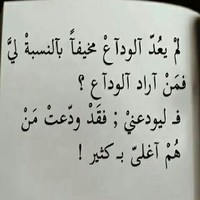 لمْ يعُدّ آلودآعْ مخيفاً بآلنسبةْ ليَّ
فمَنْ آراد آلودآع ؟
فـ ليودعنيْ ; فقَدْ ودّعتْ مَنْ
هُمْ آغلىّ بـ كثير !